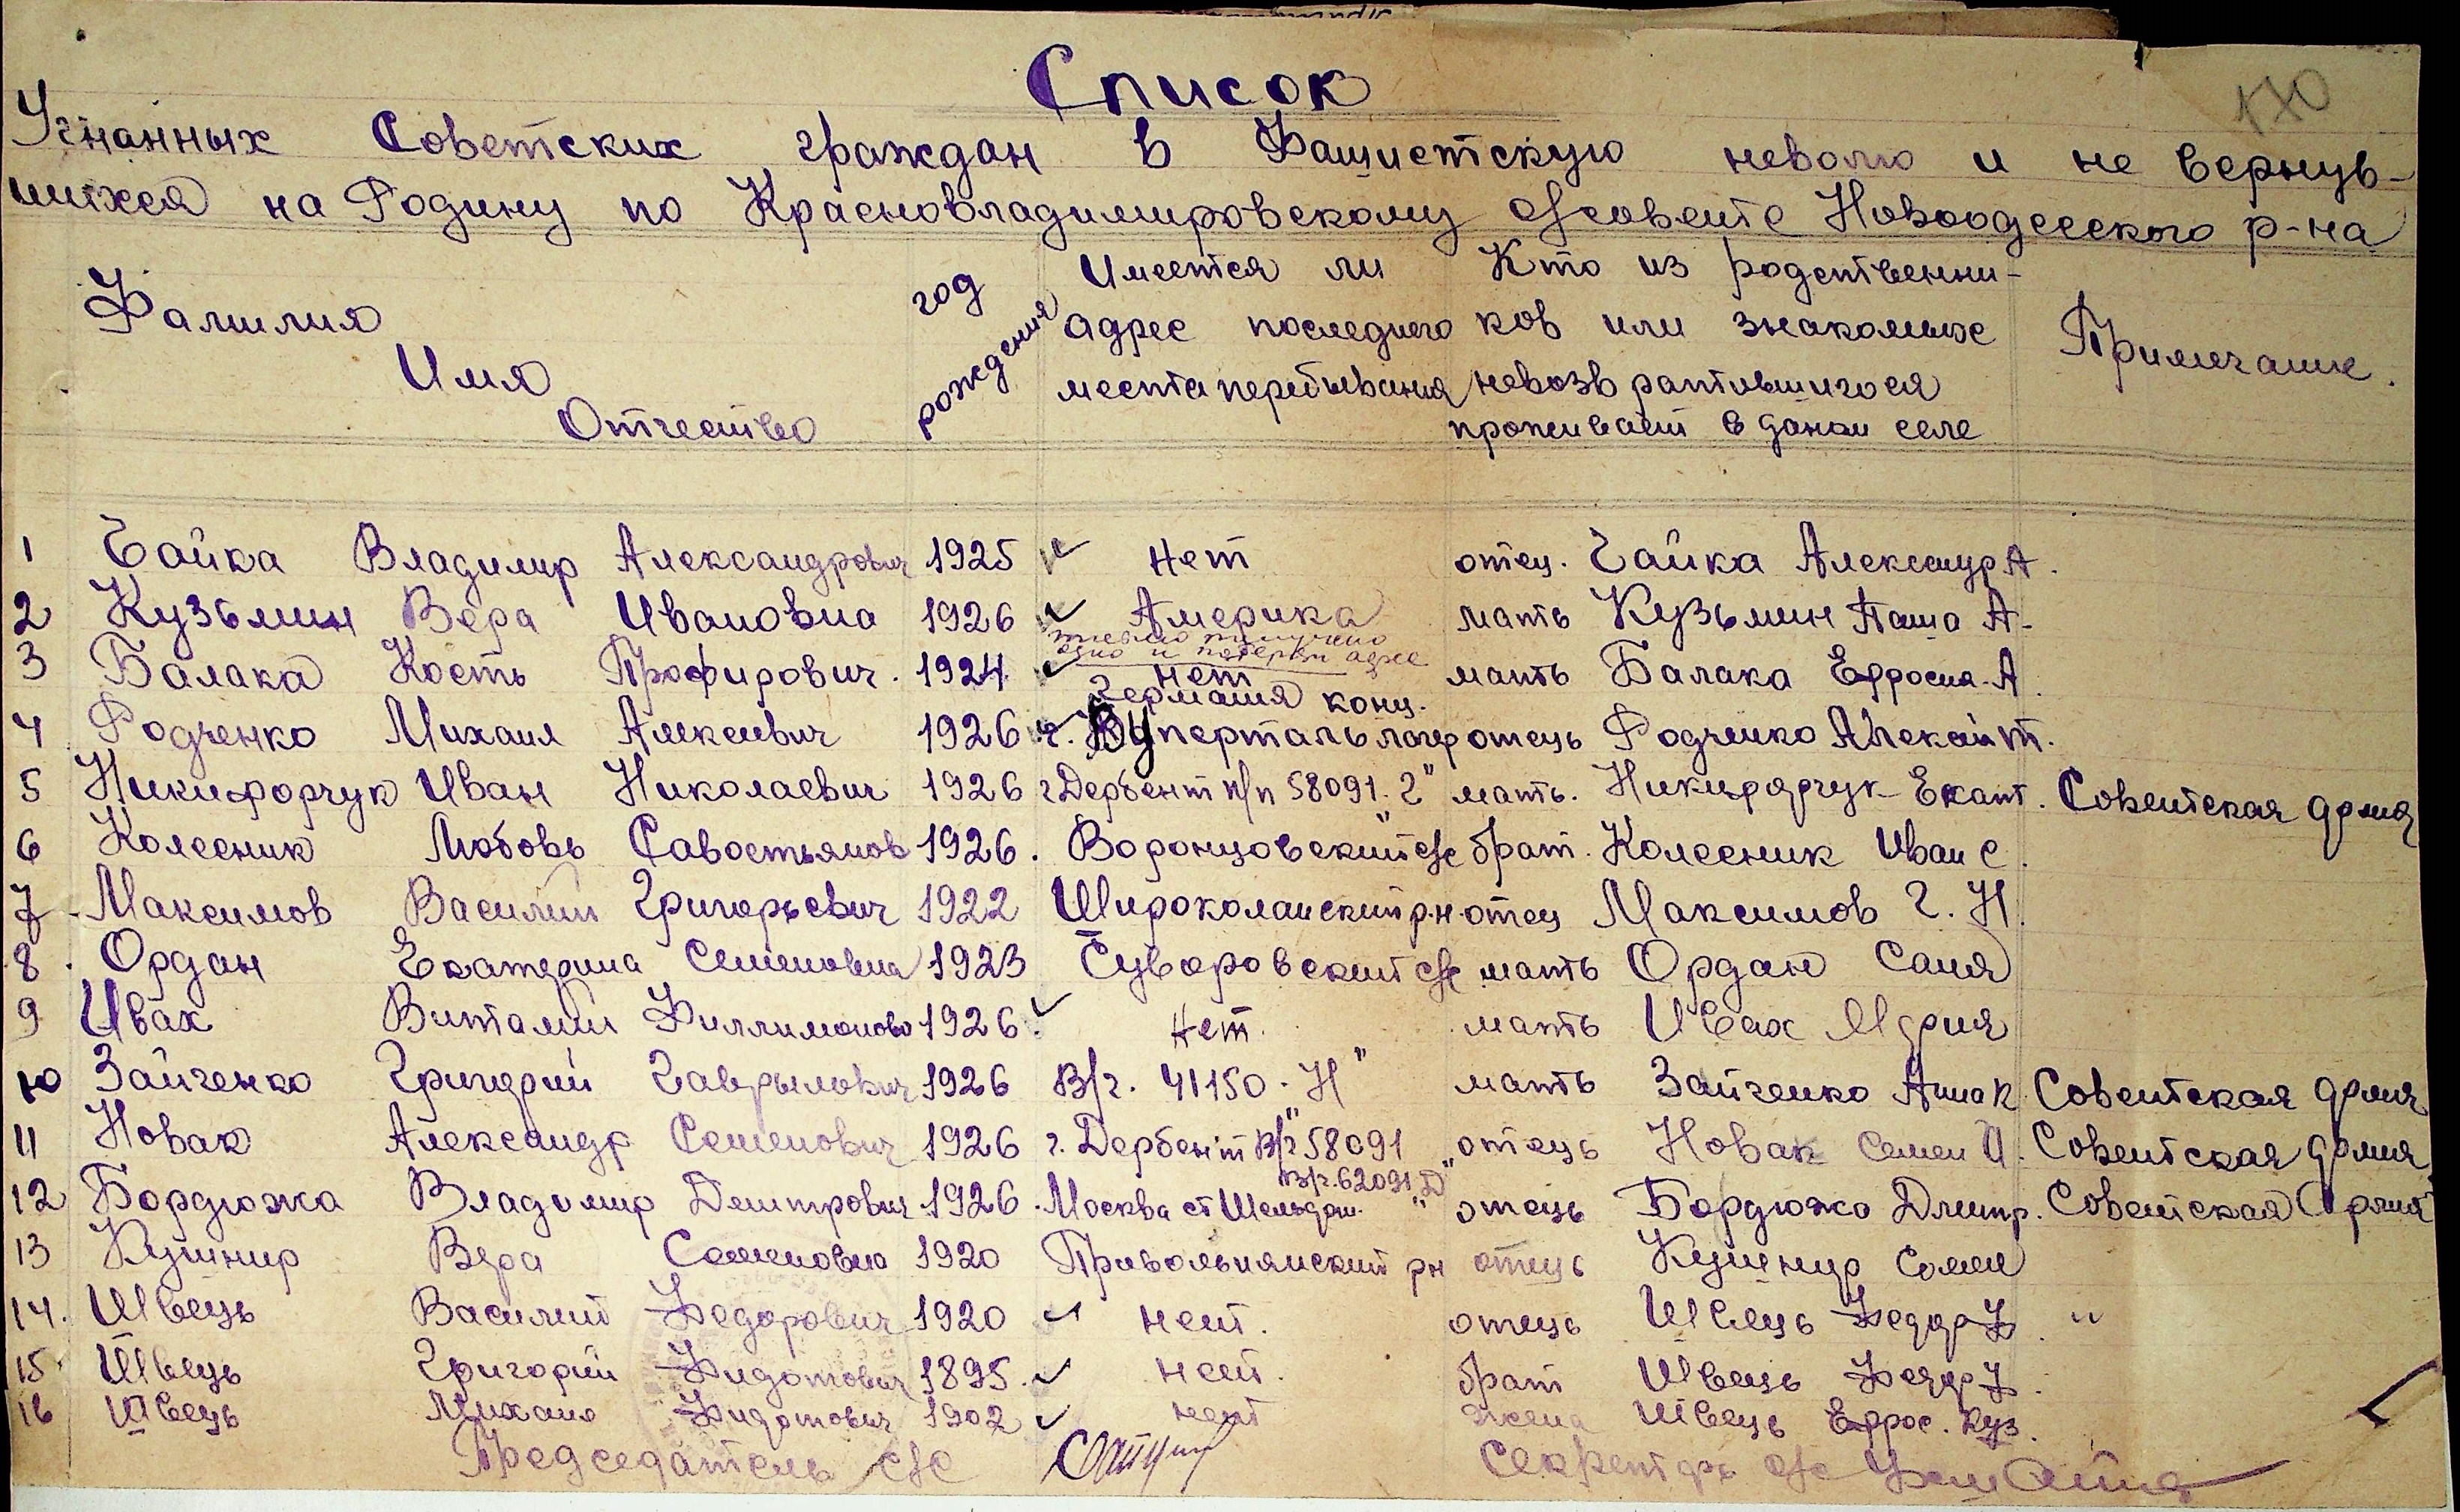 170
Список
Угнанных Советских граждан в Фашистскую неволю и не вернув-
шихся на Родину по Красновладимировскому с/совете Новоодесского р-на
Фамилия Имя Отчество
год рождения
Имеется ли
адрес последнего
места перебывания
Кто из родственни-
ков или знакомых
невозвратившигося
проживает в даном селе
Примечание.
1 Чайка Владимир Александрович 1925 нет отец. Чайка Александр А.
2 Кузьмин Вера Ивановна 1926 Америка мать Кузьмин Паша А.
письмо получено
одно и потерян адрес
3 Балака Кость Профирович. 1924 нет мать Балака Ефросия. А.
Германия конц.
4 Родченко Михаил Алексеевич 1926 г. Вуперталь лагер отець Родченко Алексей т.
5 Никифорчук Иван Николаевич 1926 г Дербент п/п 58091. 2" мать. Никифорчук Екат. Советская армия
6 Колесник Любовь Савостьянов 1926. Воронцовский с/с брат. Колесник Иван С.
7 Максимов Василий Григорьевич 1922 Широколанский р-н отец Максимов Г. Н.
8. Ордан Екатерина Семеновна 1923 Суворовский с/с мать Ордан Саня
9 Ивах Виталий Филлимоново 1926. нет. мать Ивах Мария
10 Зайченко Григорий Гаврылович 1926 В/ч. 41150 - Н" мать Зайченко Анна К. Советская армия
11 Новак Александр Семенович 1926 г. Дербент В/ч 58091 отець Новак Семен И. Советская армия
В/ч. 62091 Д"
12 Бордюжа Владимир Дмитрович 1926. Москва ст отець Бордюжа Дмитр. Советская Армия
13 Кушнир Вера Семеновна 1920 Привольнянский рн отець Кушнир Семен
14. Швець Василий Федорович 1920 нет. отець Швець Федор Ф. "
15. Швець Григорий Фидотович 1895. нет. брат Швець Федор Ф.
16 Швець Михаил Фидотович 1902 нет жена Швець Ефрос. Куз.
Председатель с/с Секретарь с/с